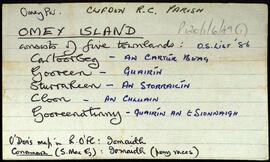 Omey Par.
CLIFDEN R.C. PARISH
OMEY ISLAND
P120/1/6/49(1)
consists of five townlands: O.S. List 86
Cartoorbeg - AN CARTÚR BEAG
Gooreen - GUAIRÍN
Sturrakeen - AN STORRAICÍN
Cloon - AN CHLUAIN
Gooreenatinny - GUAIRÍN AN tSIONNAIGH
O'Dons map in R. O'Fl: Iomaidh
Conamara (S. Mac G): Iomaidh (pony races)